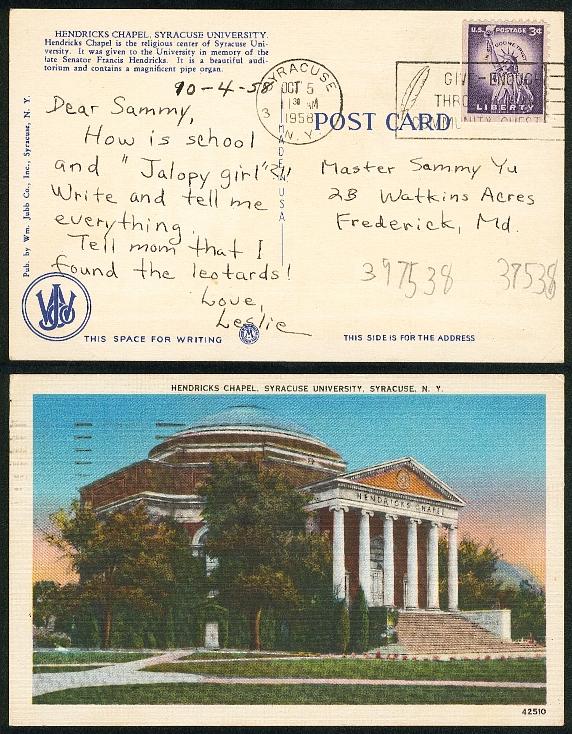 HENDRICKS CHAPEL, SYRACUSE UNIVERSITY.
Hendricks Chapel is the religious center of Syracuse Uni-
versity. It was given to the University in memory of the
late Senator Francis Hendricks. It is a beautiful audi-
torium and contains a magnificent pipe organ.
10-4-58
Dear Sammy,
How is school
and "Jalopy girl"?!!
Write and tell me
everything.
Tell mom that I
found the leotards!
Love,
Leslie
Pub. by Wm. Jubb Co., Inc., Syracuse, N. Y.
THIS SPACE FOR WRITING
MADE IN USA
SYRACUSE
OCT 5
1958
N.Y.
3
U.S. POSTAGE 3¢
IN GOD WE TRUST
LIBERTY
POST CARD
Master Sammy Yu
2B Watkins Acres
Frederick, Md.
397538 37538
THIS SIDE IS FOR THE ADDRESS
HENDRICKS CHAPEL, SYRACUSE UNIVERSITY, SYRACUSE, N. Y.
HENDRICKS CHAPEL
42510